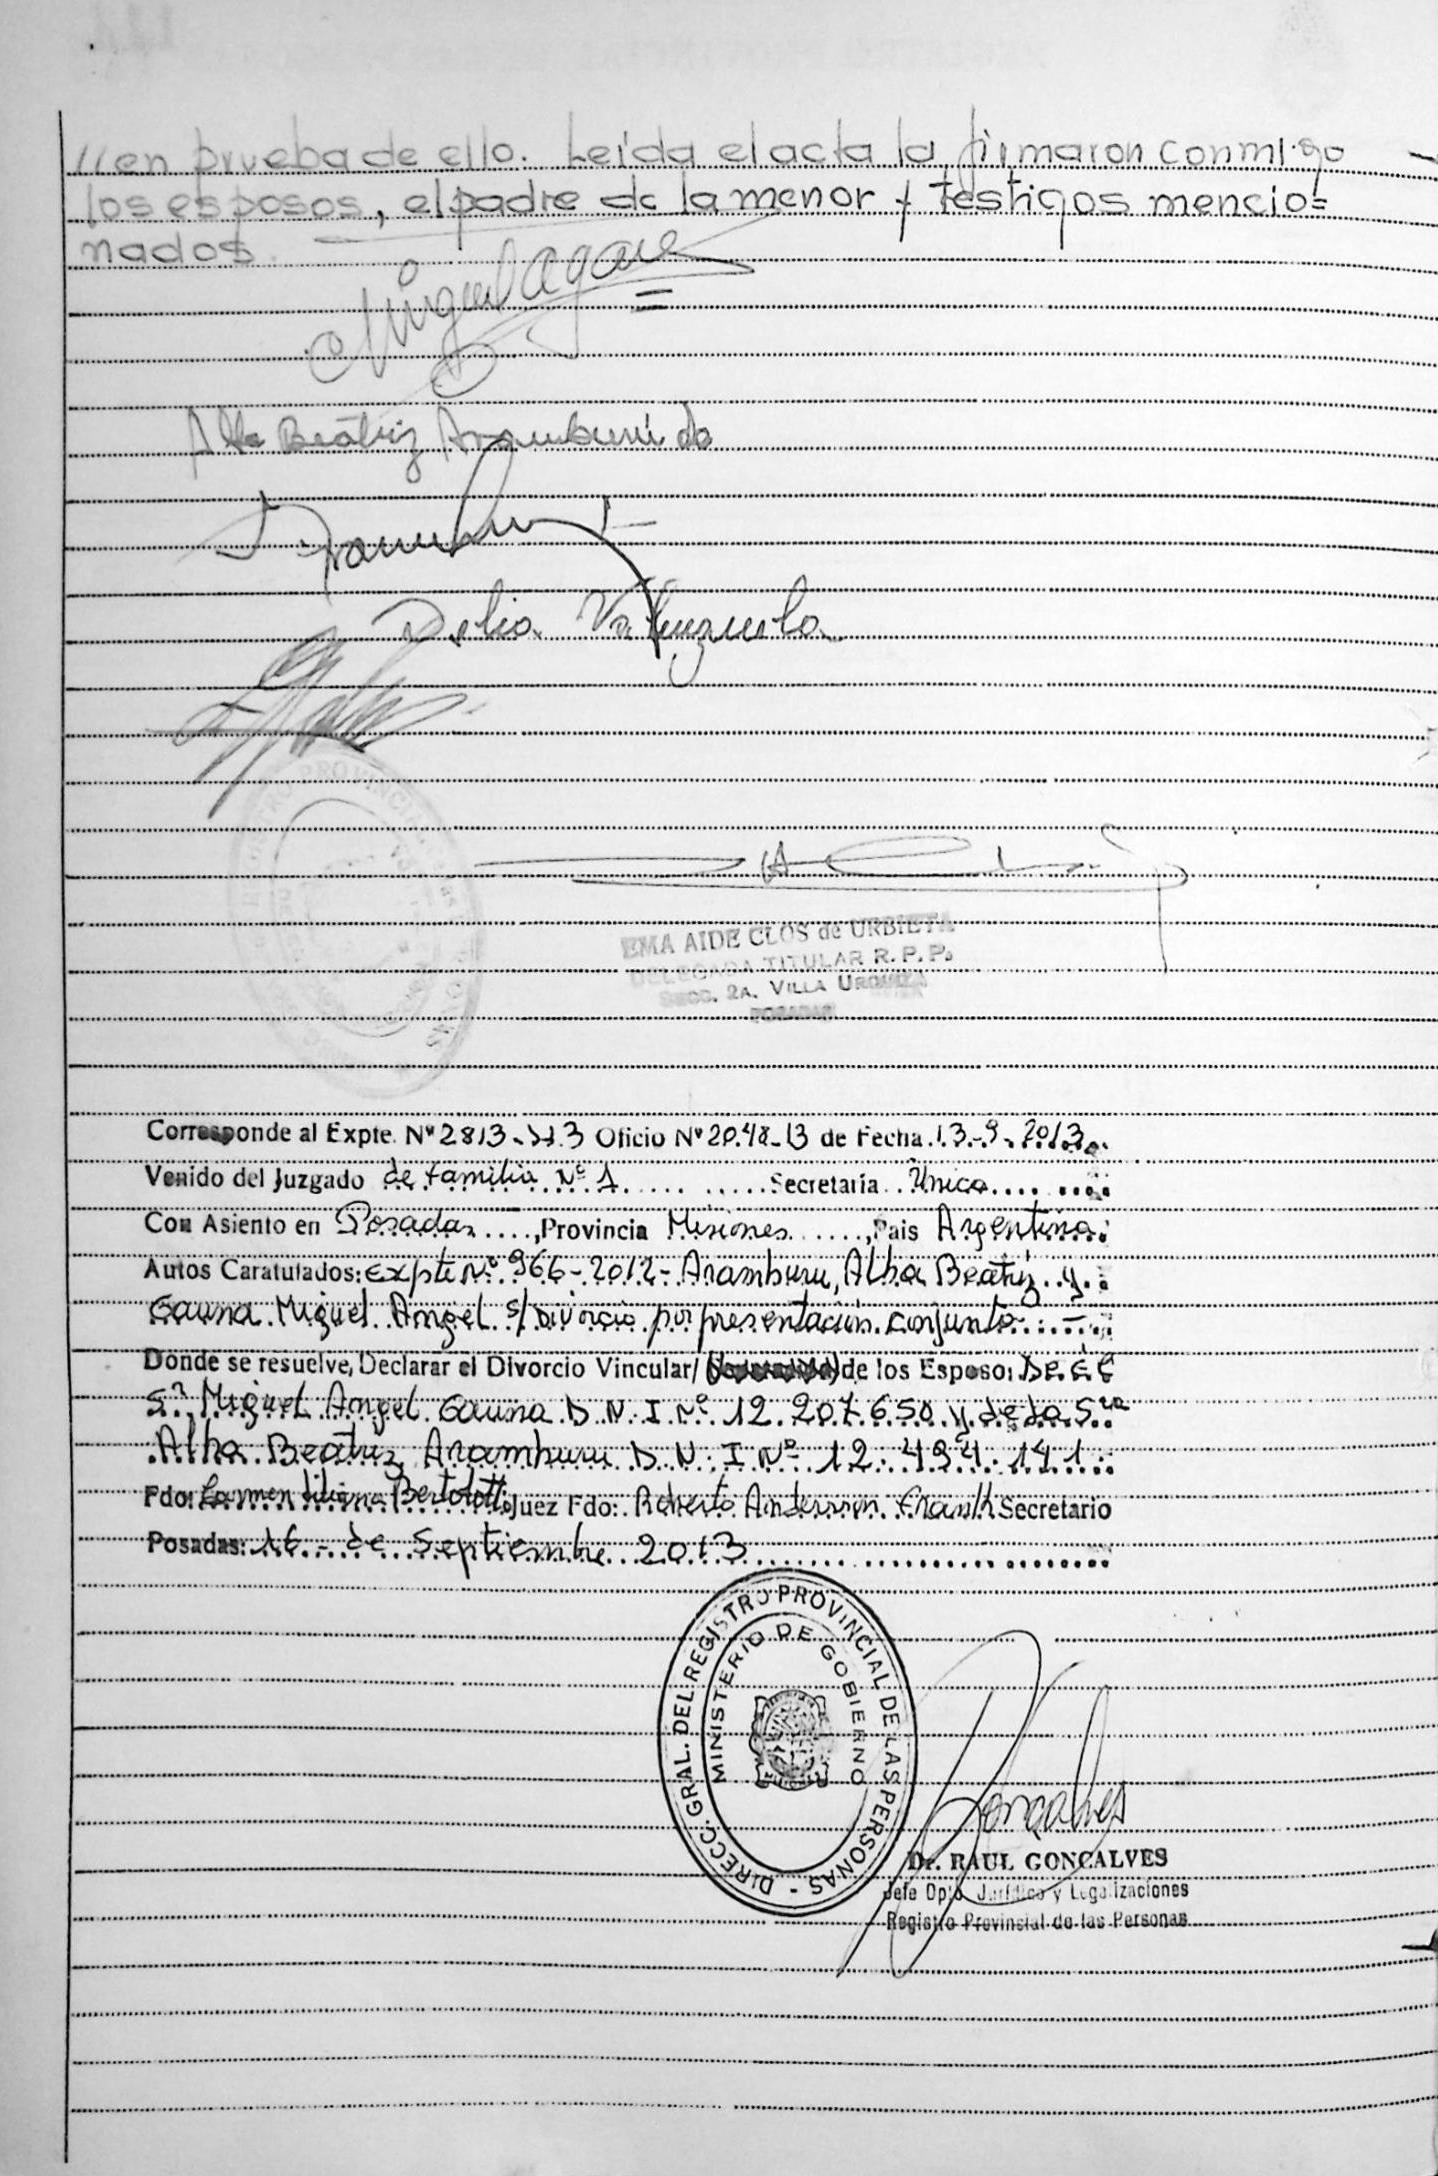 //en prueba de ello. Leída el acta la firmaron conmigo
los esposos, el padre de la menor y testigos mencio=
nados.
Alba Beatriz Aramburú de
Delia Valenzuela
EMA AIDE CLOS de URBIETA
DELEGADA TITULAR R. P. P.
SECC. 2A. VILLA URQUIZA
POSADAS
Corresponde al Expte. Nº 2813 - 13 Oficio Nº 2048-13 de Fecha 13-9-2013
Venido del Juzgado de Familia Nº 1 Secretaria Única
Con Asiento en Posadas, Provincia Misiones, Pais Argentina
Autos Caratulados: Expte Nº 966-2012- Aramburu, Alba Beatriz y
Gauna Miguel Angel s/Divorcio por presentación conjunta
Donde se resuelve, Declarar el Divorcio Vincular/ de los Esposo:
Sr. Miguel Angel Gauna D N I Nº 12.207.650 y de la Sra
Alba Beatriz Aramburu D N I Nº 12.494.141
Fdo: Carmen Liliana Bertolotti Juez Fdo: Roberto Andersson Frank Secretario
Posadas: 16 de Septiembre 2013
DIRECC. GRAL. DEL REGISTRO PROVINCIAL DE LAS PERSONAS -
MINISTERIO DE GOBIERNO
Goncalves
Dr. RAUL GONCALVES
Jefe Dpto. Jurídico y Legalizaciones
Registro Provincial de las Personas